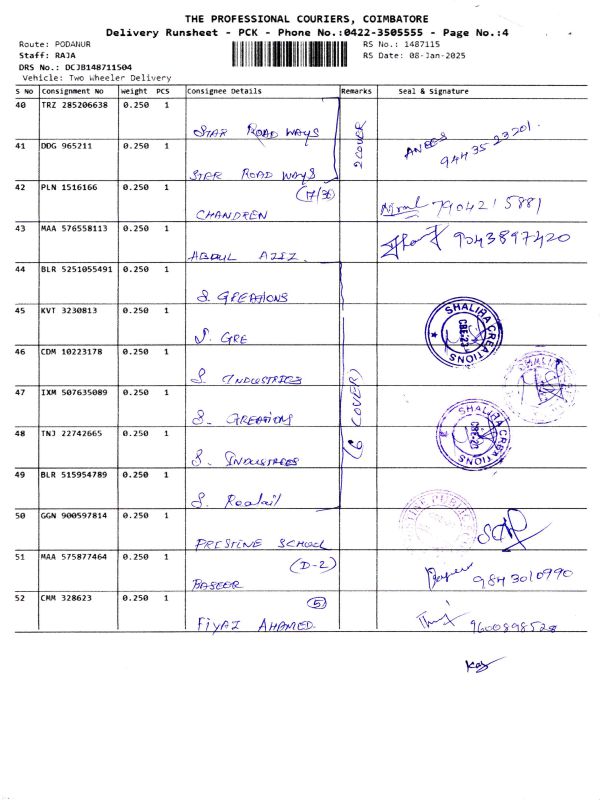 THE PROFESSIONAL COURIERS, COIMBATORE
Delivery Runsheet - PCK - Phone No.:0422-3505555 - Page No.:4
Route: PODANUR
RS No.: 1487115
Staff: RAJA
RS Date: 08-Jan-2025
DRS No.: DCJB148711504
Vehicle: Two Wheeler Delivery
S No Consignment No Weight PCS Consignee Details Remarks Seal & Signature
40 TRZ 285206638 0.250 1
STAR ROAD WAYS
2 COVER
41 DDG 965211 0.250 1
ANEES 9443523201.
STAR ROAD WAYS
42 PLN 1516166 0.250 1
(17/36)
CHANDREN
7904215881
43 MAA 576558113 0.250 1
ABDUL AZIZ.
9043897420
44 BLR 5251055491 0.250 1
S. GREATIONS
45 KVT 3230813 0.250 1
S. GRE
SHALIRA CREATIONS
CBE-23
46 CDM 10223178 0.250 1
S. INDUSTRIES
(6 COVER)
47 IXM 507635089 0.250 1
S. GREATIONS
SHALIRA CREATIONS
48 TNJ 22742665 0.250 1
S. INDUSTREES
49 BLR 515954789 0.250 1
S. Reatail
50 GGN 900597814 0.250 1
PRESTINE SCHOOL
51 MAA 575877464 0.250 1
(D-2)
BASEER
9843010990
52 CMM 328623 0.250 1
(5)
FIYAZ AHAMED.
9600898528